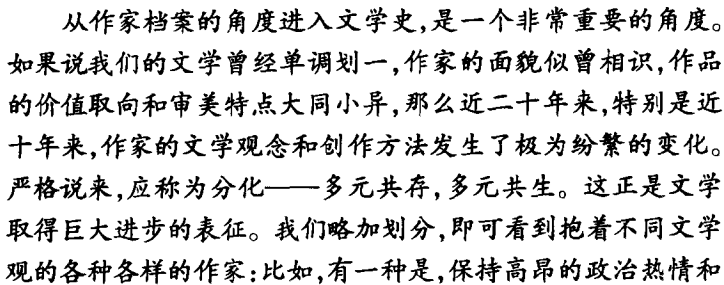 从作家档案的角度进入文学史,是一个非常重要的角度。
如果说我们的文学曾经单调划一,作家的面貌似曾相识,作品
的价值取向和审美特点大同小异,那么近二十年来,特别是近
十年来,作家的文学观念和创作方法发生了极为纷繁的变化。
严格说来,应称为分化——多元共存,多元共生。这正是文学
取得巨大进步的表征。我们略加划分,即可看到抱着不同文学
观的各种各样的作家:比如,有一种是,保持高昂的政治热情和